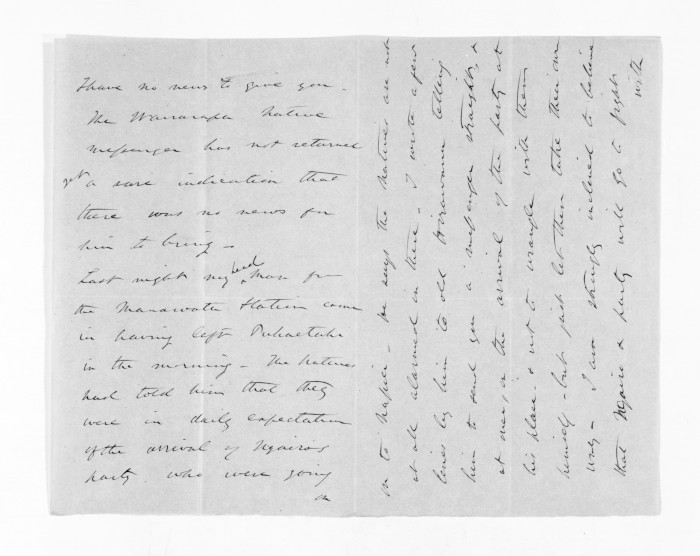 I have no news to give you -
The Wairarapa Native
messenger has not returned
yet a sure indication that
there was no news for
him to bring -
Last night my head man for
the Manawatu Station came
in having left Puhaotahi
in the morning - The Natives
had told him that they
were in daily expectation
of the arrival of Ngairos
party who were going
on
on to Napier - He says the Natives are not
at all alarmed in there - I wrote a few
lines by him to old Hirawanu telling
him to send you a messenger straight &
at once, on the arrival of the party at
his place & not to wrangle with them
himself - but just let them take their own
way - I am strongly inclined to believe
that Ngairo & party will go to fight
with